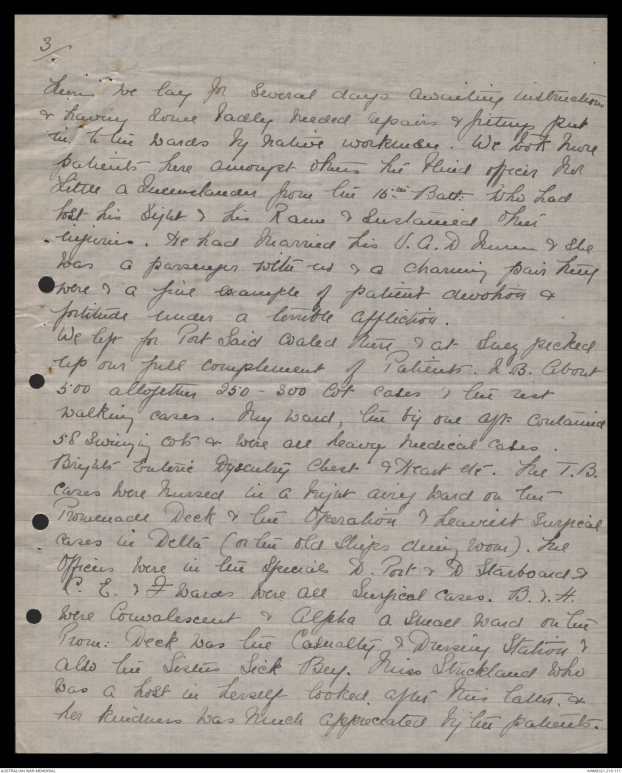 3/
here we lay for several days awaiting instructions
& having some badly needed repairs & fittings put
in to the wards by native workmen. We took more
patients here amongst others the blind officer Mr
Little a Queenslander from the 15th Batt. who had
lost his sight & his R arm & sustained other
injuries. He had married his V.A.D nurse & she
was a passenger with us & a charming pair they
were & a fine example of patient devotion &
fortitude under a terrible affliction.
We left for Port Said coaled there & at Suez picked
up our full complement of Patients. I.B. About
500 altogether 250-300 Cot cases & the rest
walking cases. My ward, the big one aft: contained
58 swinging cots & were all heavy medical cases.
Brights Enteric Dysentry Chest & Heart etc. The T.B.
cases were nursed in a bright airy ward on the
Promenade Deck & the Operation & heaviest Surgical
cases in Delta (or the old Ships dining room). The
Officers were in the Specials D. Port & D Starboard &
C. E. & F Wards were all Surgical cases. B. & H.
were Convalescent & Alpha a small ward on the
Prom: Deck was the Casualty & Dressing Station &
also the Sisters Sick Bay. Miss Strickland who
was a host in herself looked after this latter &
her kindness was much appreciated by the patients.
AUSTRALIAN WAR MEMORIAL